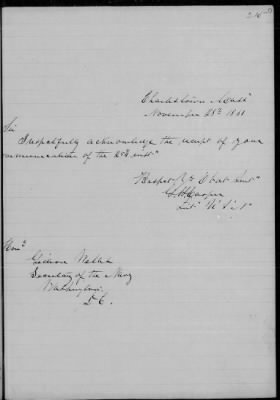 Charlestown Mass
November 28th 1861
Sir
I respectfully acknowledge the receipt of your
communication of the 25th inst
Respect Yr Obdt Servt
Lieut U.S.N
Gideon Welles
Secretary of the Navy
Washington
D.C.